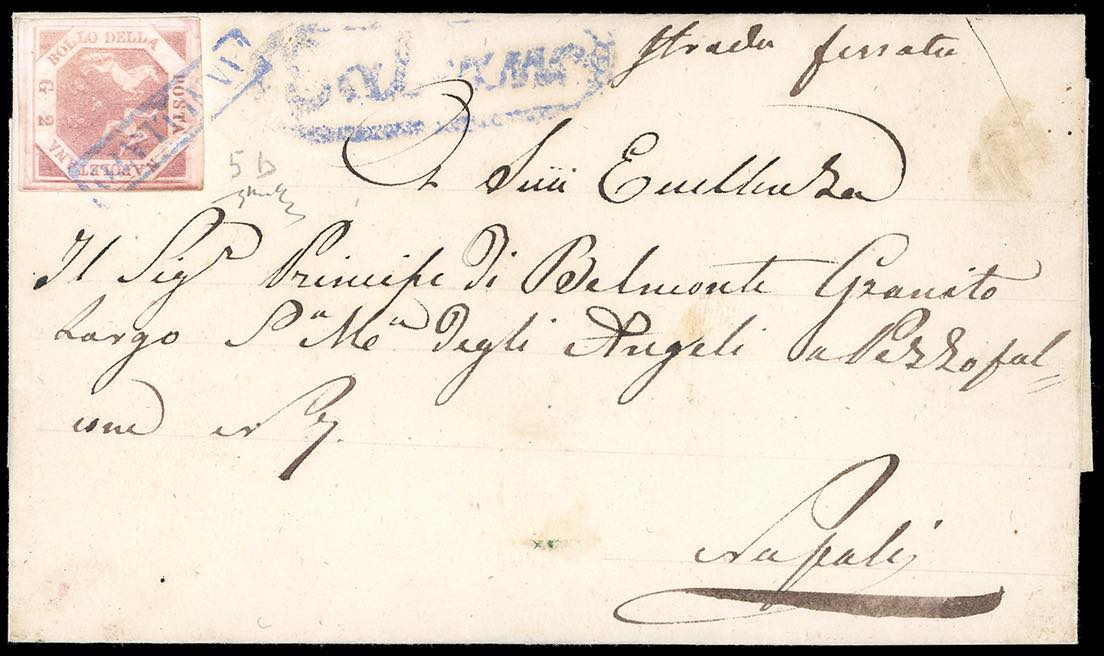 BOLLO DELLA
POSTA
NAPLETANA
G 2
Strada ferrata
5 b
A Sua Eccellenza
Il Sigr Principe di Belmonte Granito
Largo Sa Ma degli Angeli a Pizzofal=
cone No 7.
Napoli